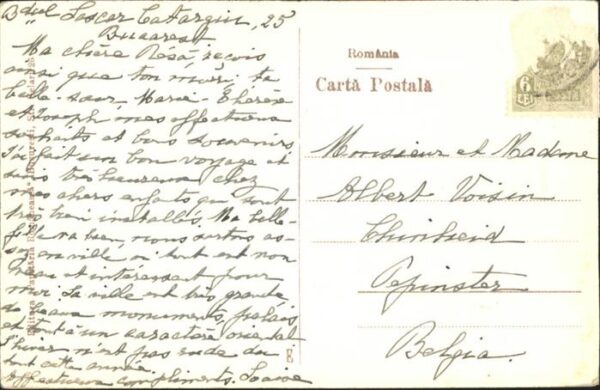 Bdul Lascar Catargiu, 25
Bucarest
Ma chère Résa, reçois
ainsi que ton mari, ta
belle-soeur, Marie-Thérèse
et Joseph mes affectueux
souhaits et bons souvenirs
J'ai fait un bon voyage et
suis très heureuse chez
mes chers enfants qui sont
très bien installés. Ma belle-
fille va bien, nous sortons as-
sez en ville où tout est nou-
veau et intéressant pour
moi. La ville est très grande
de beaux monuments, palais
et tout à un caractère oriental
L'hiver n'est pas rude du
tout cette année.
Affectueux compliments. Louise
România
Cartă Postală
6
LEI
Monsieur et Madame
Albert Voisin
Chinheid
Pepinster
Belgia